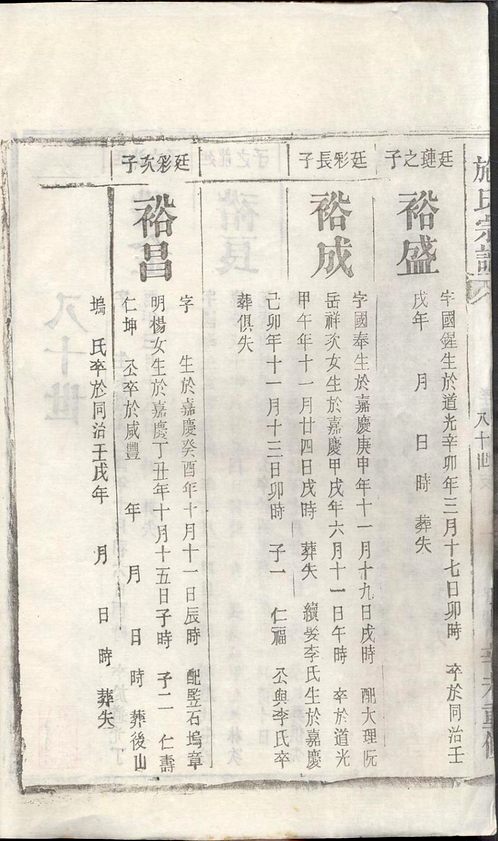 施氏宗譜
八十世
廷璉之子
裕盛
字國鍟生於道光辛卯年三月十七日卯時 卒於同治壬
戌年 月 日 時 葬失
廷彩長子
裕成
字國奉生於嘉慶庚申年十一月十九日戌時 配大理阮
岳祥次女生於嘉慶甲戌年六月十一日午時 卒於道光
甲午年十一月廿四日戌時 葬失 續娶李氏生於嘉慶
己卯年十一月十三日卯時 子一 仁福 丞與李氏卒
葬俱失
廷彩次子
裕昌
字 生於嘉慶癸酉年十月十一日辰時 配監石塢章
明楊女生於嘉慶丁丑年十月十五日子時 子二 仁壽
仁坤 丞卒於咸豐 年 月 日 時 葬後山
塢 氏卒於同治壬戌年 月 日 時 葬失